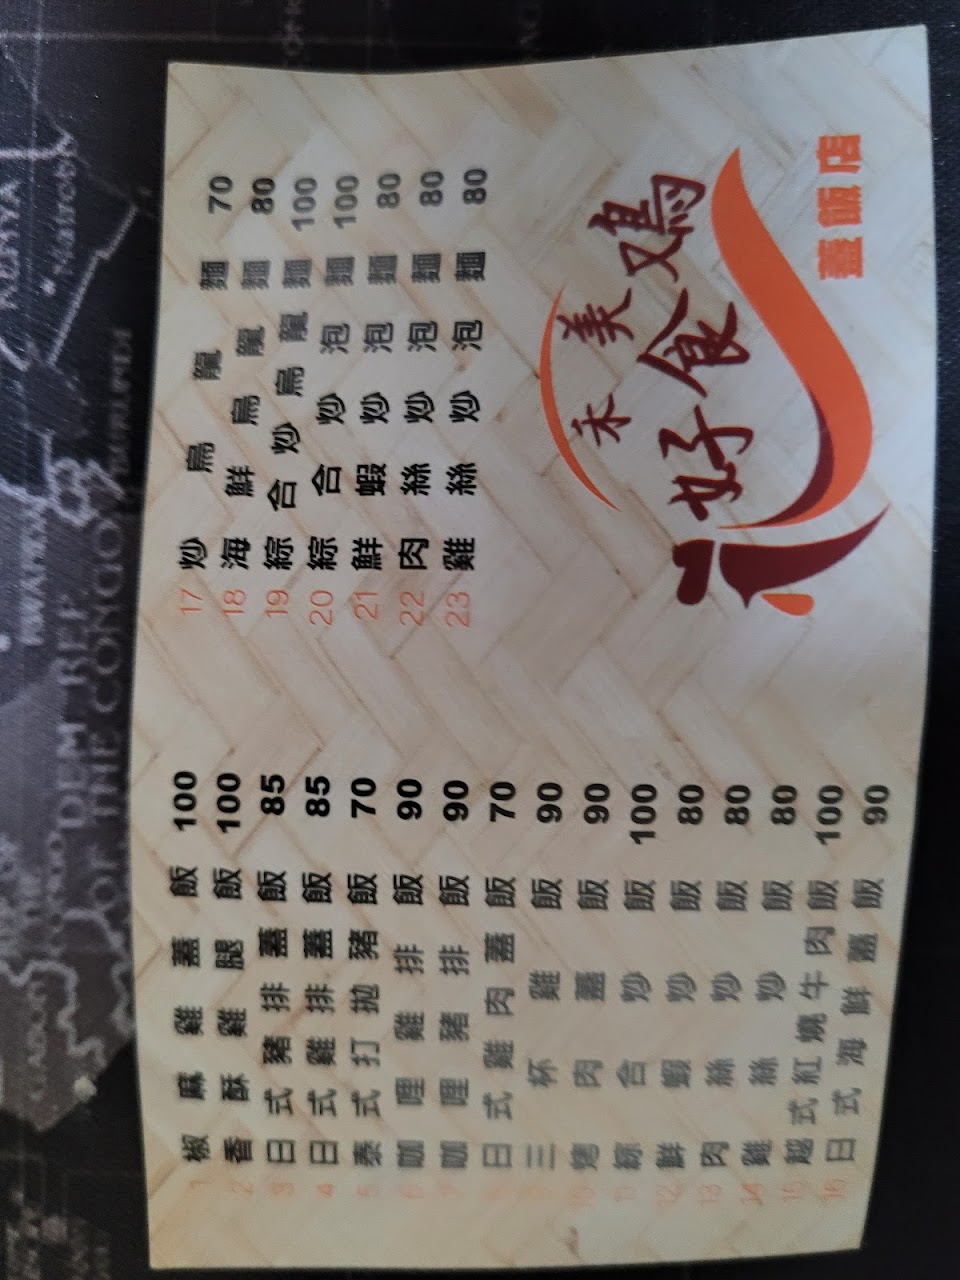 1 椒麻雞蓋飯 100
2 香酥雞腿飯 100
3 日式豬排蓋飯 85
4 日式雞排蓋飯 85
5 泰式打拋豬飯 70
6 咖哩雞排飯 90
7 咖哩豬排飯 90
8 日式雞肉蓋飯 70
9 三杯雞飯 90
10 烤肉蓋飯 90
11 綜合炒飯 100
12 鮮蝦炒飯 80
13 肉絲炒飯 80
14 雞絲炒飯 80
15 越式紅燒牛肉飯 100
16 日式海鮮蓋飯 90
17 炒烏龍麵 70
18 海鮮烏龍麵 80
19 綜合炒烏龍麵 100
20 綜合炒泡麵 100
21 鮮蝦炒泡麵 80
22 肉絲炒泡麵 80
23 雞絲炒泡麵 80
禾美又鳥
好食
蓋飯店
Nairobi
BURUNDI
RWANDA
DEM REP
OF THE CONGO